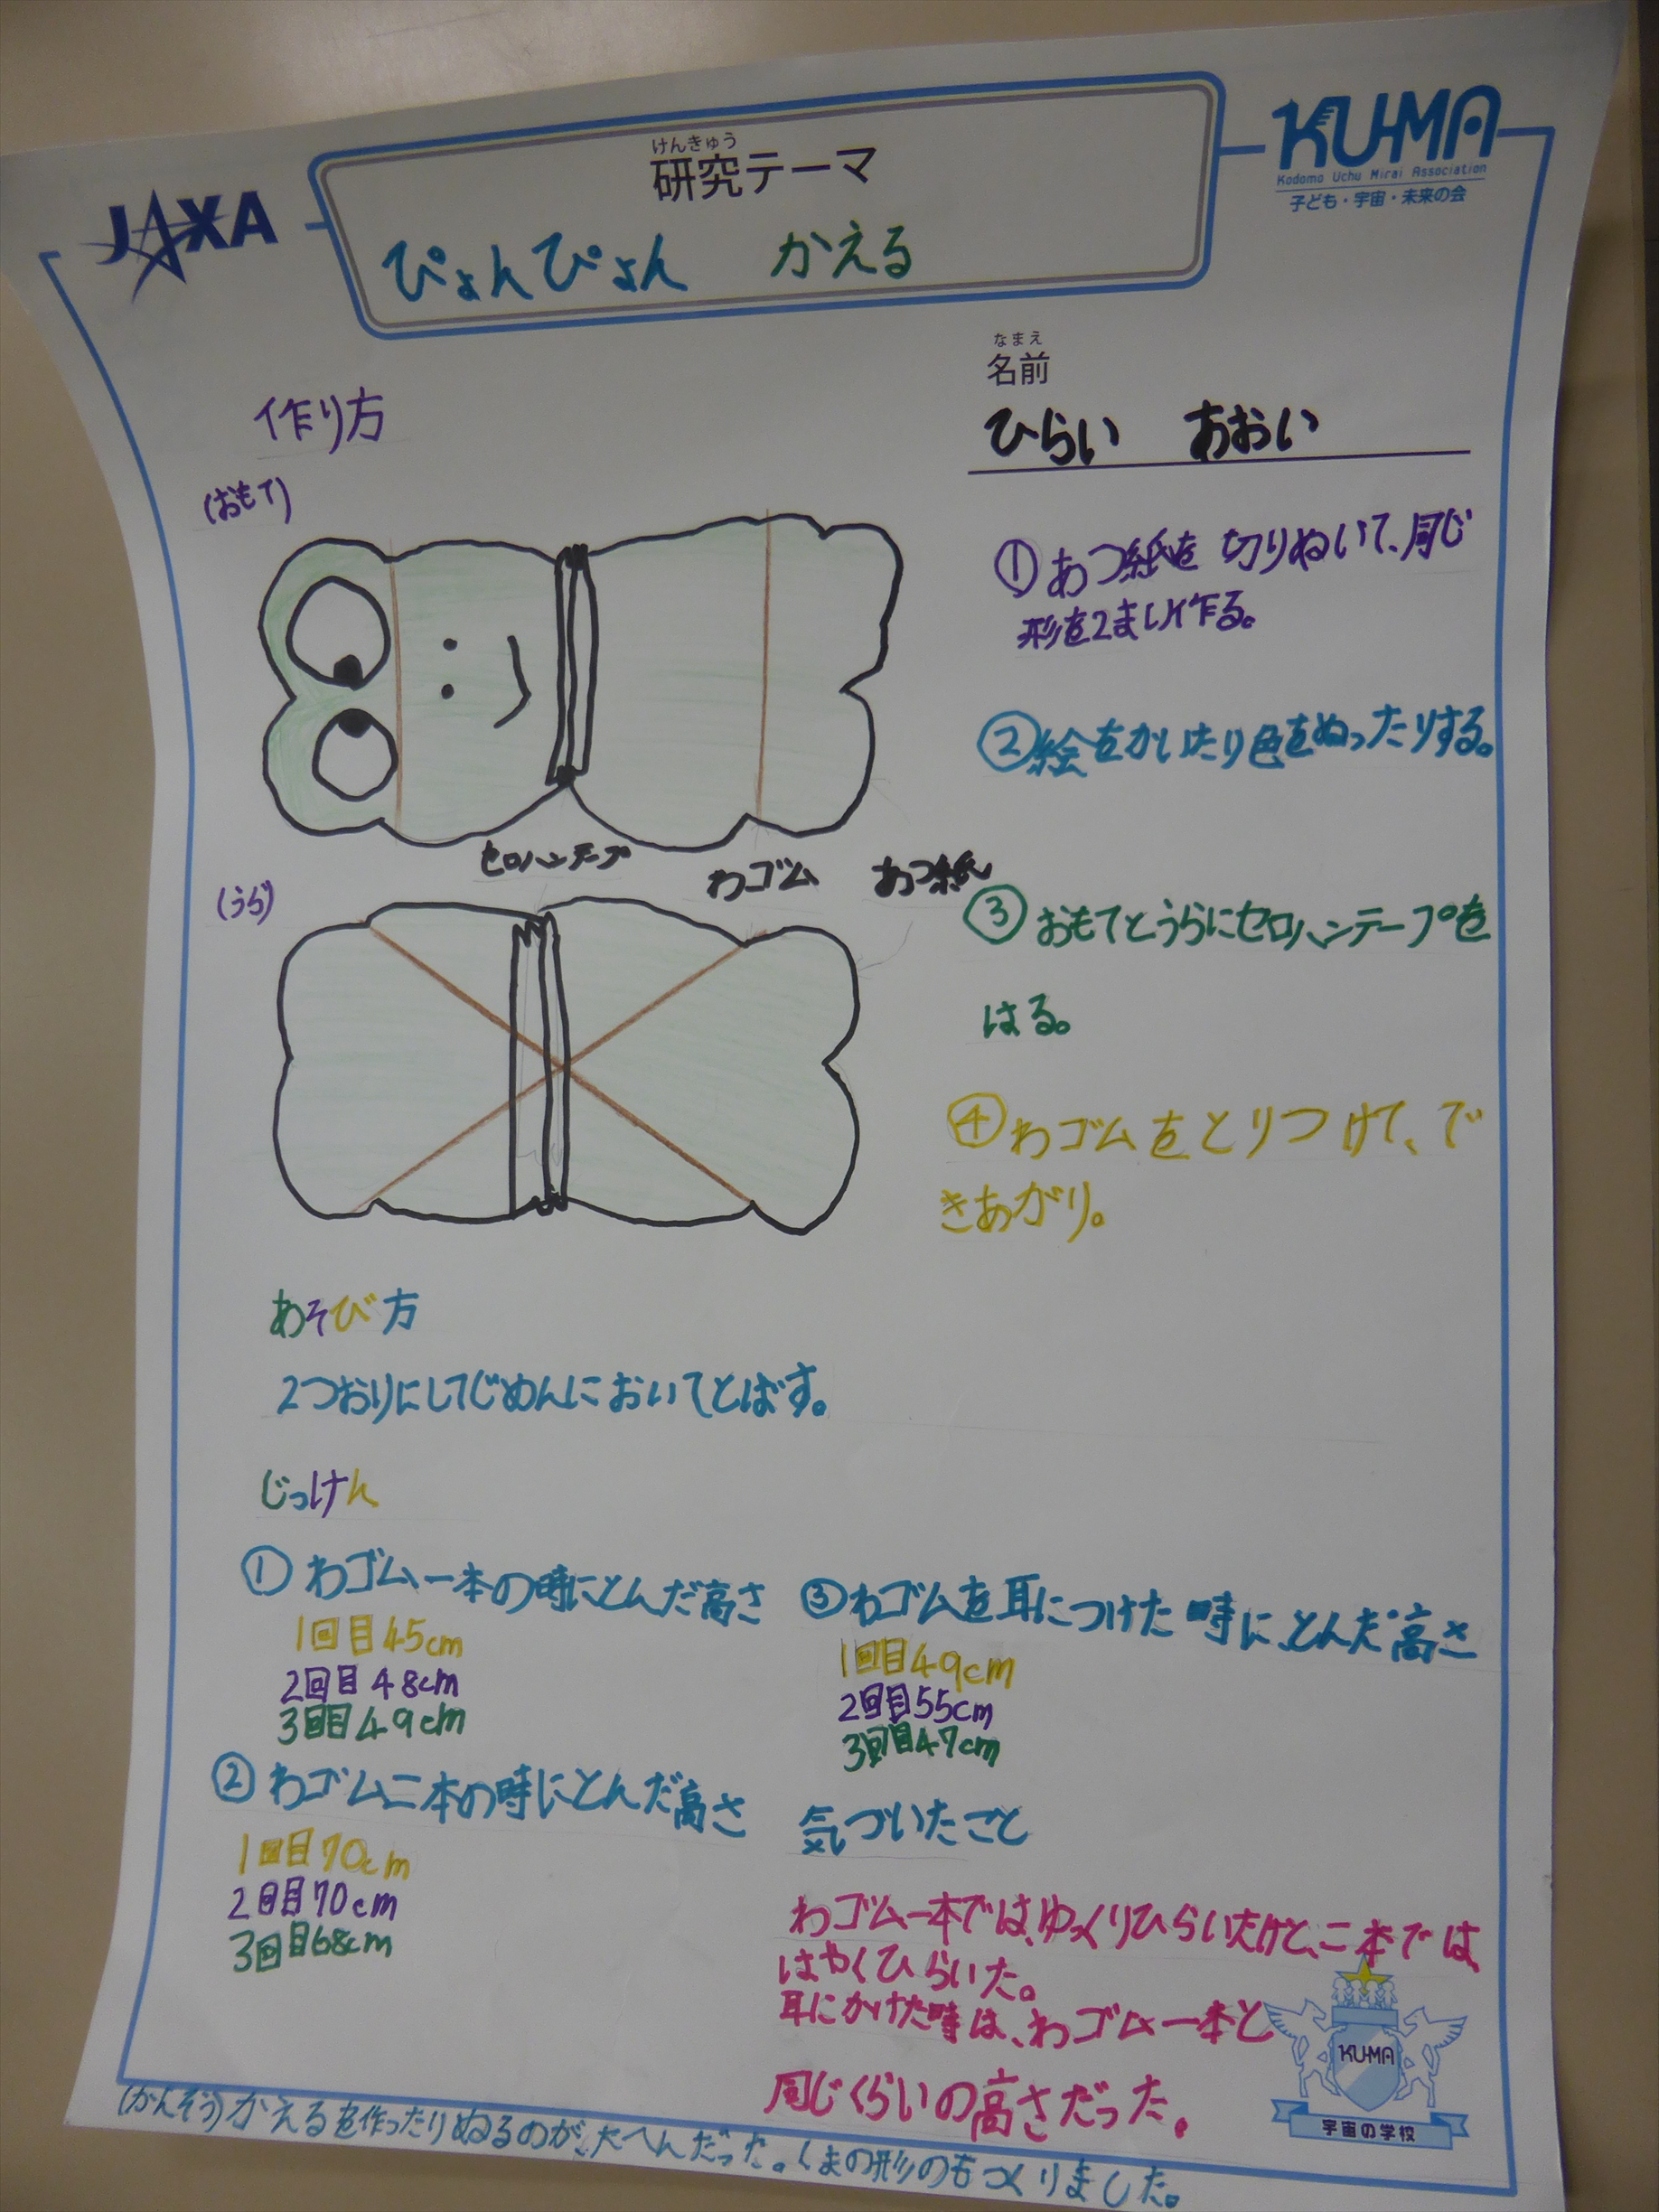 JAXA
けんきゅう
研究テーマ
ぴょんぴょん かえる
KU-MA
Kodomo Uchu Mirai Association
子ども・宇宙・未来の会
なまえ
名前
ひらい あおい
作り方
(おもて)
セロハンテープ
わゴム
あつ紙
(うら)
①あつ紙を切りぬいて、同じ
形を2まい作る。
②絵をかいたり色をぬったりする。
③おもてとうらにセロハンテープを
はる。
④わゴムをとりつけて、で
きあがり。
あそび方
2つおりにしてじめんにおいてとばす。
じっけん
①わゴム一本の時にとんだ高さ
1回目45cm
2回目48cm
3回目49cm
②わゴム二本の時にとんだ高さ
1回目70cm
2回目70cm
3回目68cm
③わゴムを耳につけた時にとんだ高さ
1回目49cm
2回目55cm
3回目47cm
気づいたこと
わゴム一本では、ゆっくりひらいたけど、二本では
はやくひらいた。
耳にかけた時は、わゴム一本と
同じくらいの高さだった。
KU-MA
宇宙の学校
(かんそう)かえるを作ったりぬるのが、たへんだった。くまの形のもつくりました。